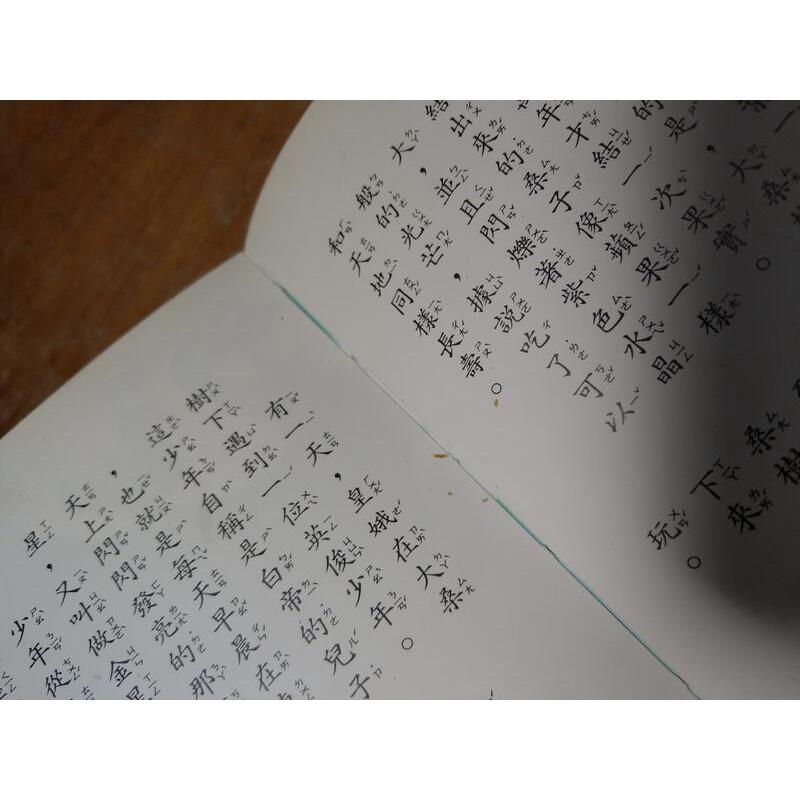 的是，大桑
年才結一次，果實。
結出來的桑子像蘋果一樣
大，並且閃爍著紫色水晶
般的光芒，據說吃了可以
和天地同樣長壽。
桑樹
下來
玩。
有一天，皇娥在大桑
樹下遇到一位英俊少年。
這少年自稱是白帝的兒子
，也就是每天早晨在
天上閃閃發亮的那
星，又叫做金星
少年從